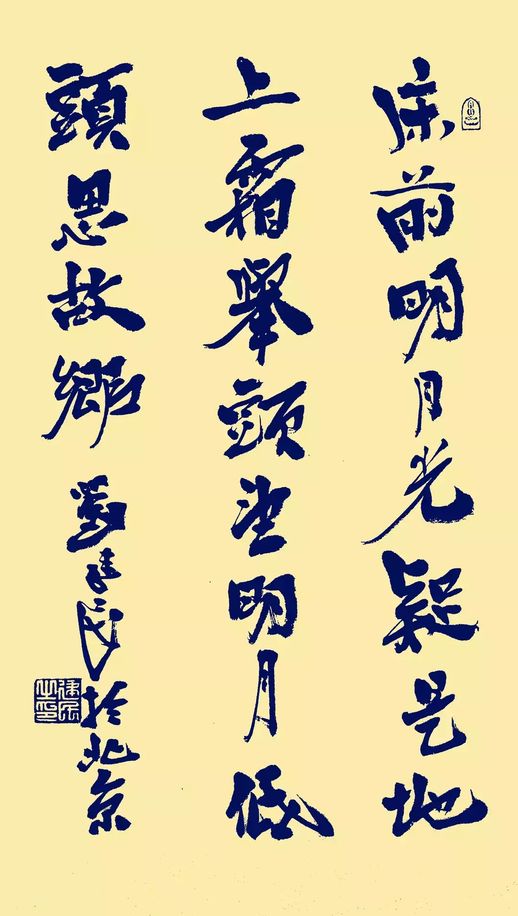 床前明月光疑是地
上霜舉頭望明月低
頭思故鄉
建民於北京